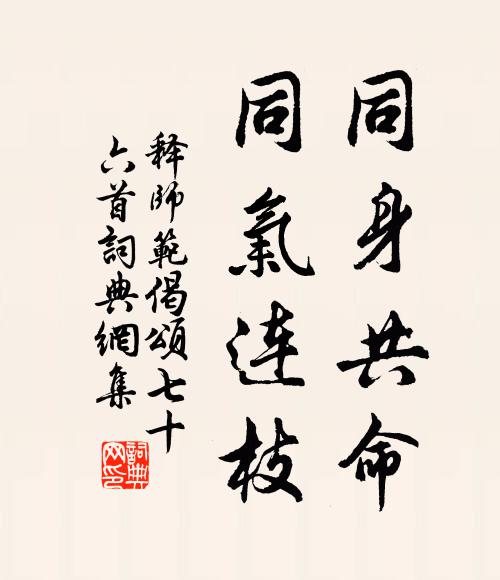 同身共命
同氣連枝
释師範偈頌七十
六首詞典網集
詞典网印